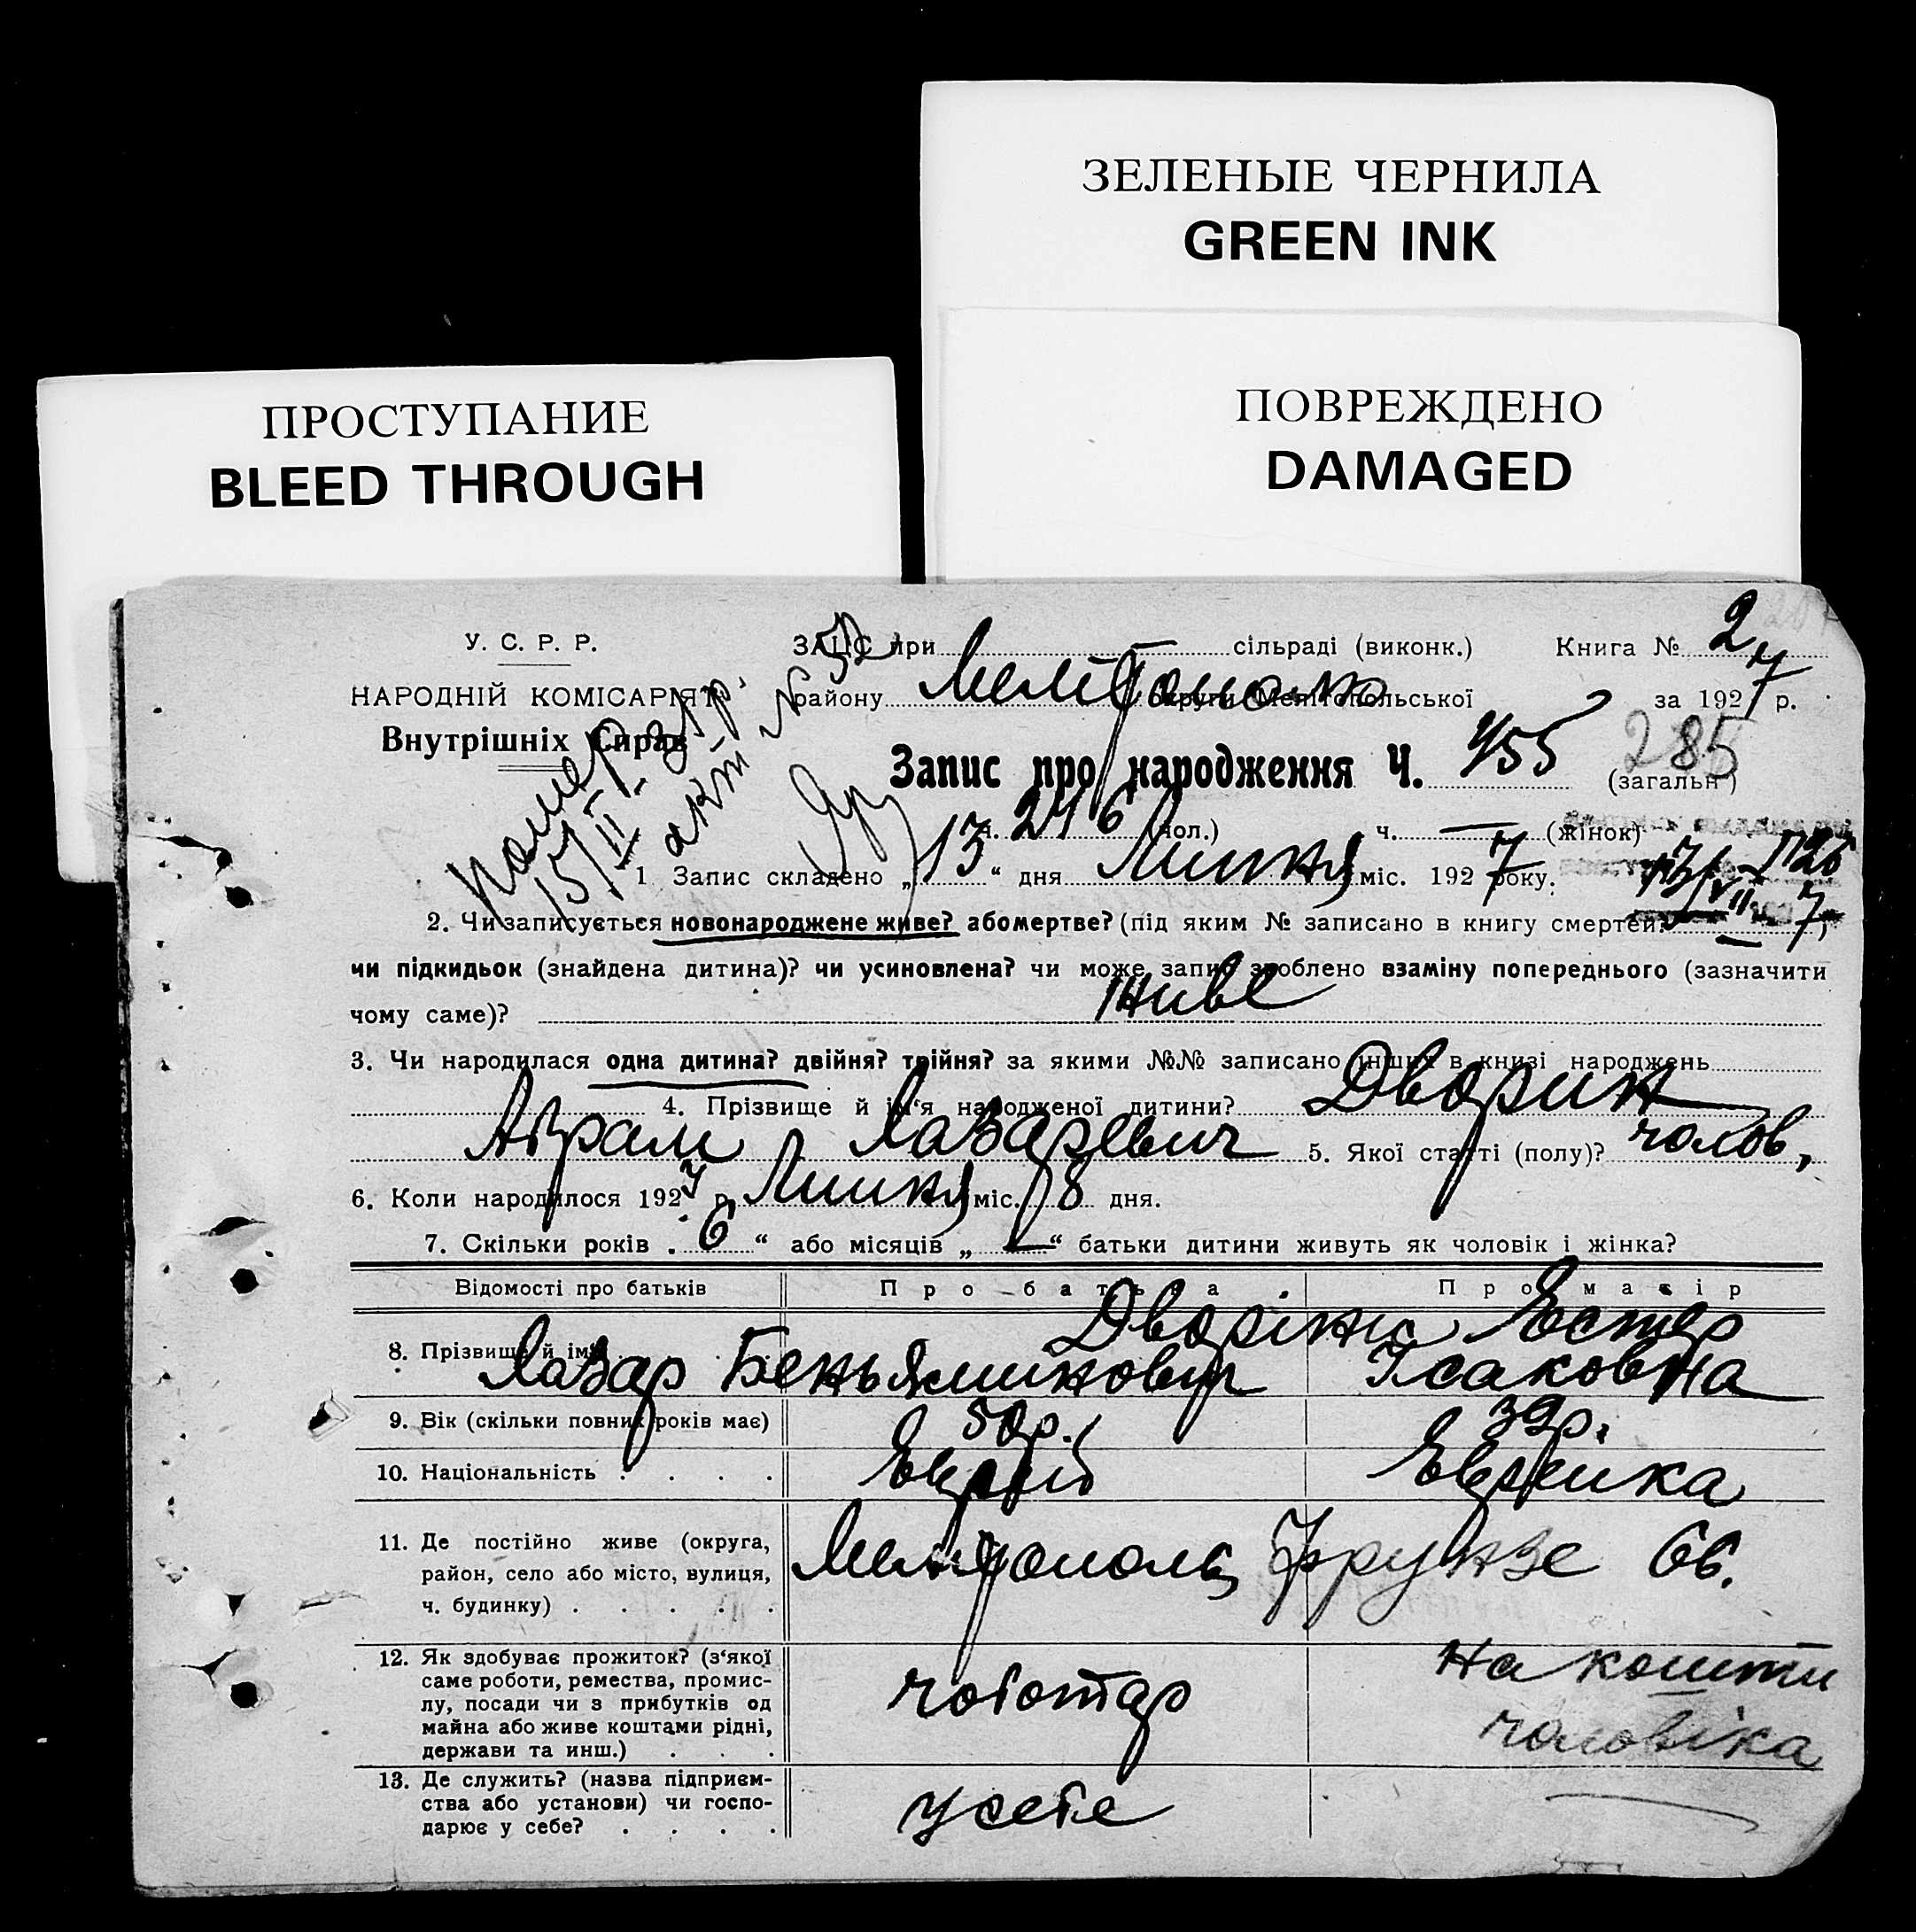 ЗЕЛЕНЫЕ ЧЕРНИЛА
GREEN INK
ПРОСТУПАНИЕ
BLEED THROUGH
ПОВРЕЖДЕНО
DAMAGED
У. С. Р. Р.
НАРОДНІЙ КОМІСАРІЯТ
Внутрішніх Справ
ЗАЦС при сільраді (виконк.) Книга № 2
району Мелітополь округи Мелітопольської за 1927 р.
Запис про народження Ч. 455 285 (загальн)
помер
акт №
ч. 246 (чол.) ч. — (жінок)
1 Запис складено „13“ дня Липня міс. 1927 року.
2. Чи записується новонароджене живе? або мертве? (під яким № записано в книгу смертей?
чи підкидьок (знайдена дитина)? чи усиновлена? чи може запис зроблено взаміну попереднього (зазначити
чому саме)? живе
3. Чи народилася одна дитина? двійня? трійня? за якими №№ записано інших в книзі народжень
4. Прізвище й ім‘я народженої дитини? Дворин
Абрам Лазаревич 5. Якої статті (полу)? чолов,
6. Коли народилося 1927 р. Липня міс. 8 дня.
7. Скільки років „6“ або місяців „—“ батьки дитини живуть як чоловік і жінка?
Відомості про батьків Про батька Про матір
8. Прізвище й ім‘я Дворіни Лазар Беньямінович Естер Ісаковна
9. Вік (скільки повних років має) 50р. 39р.
10. Національність Еврей Еврейка
11. Де постійно живе (округа,
район, село або місто, вулиця,
ч. будинку) Мелітополь Фрунзе 66.
12. Як здобуває прожиток? (з‘якої
саме роботи, ремества, промис-
лу, посади чи з прибутків од
майна або живе коштами рідні,
держави та инш.) чоботар на кошти чоловіка
13. Де служить? (назва підприєм-
ства або установи) чи госпо-
дарює у себе? у себе